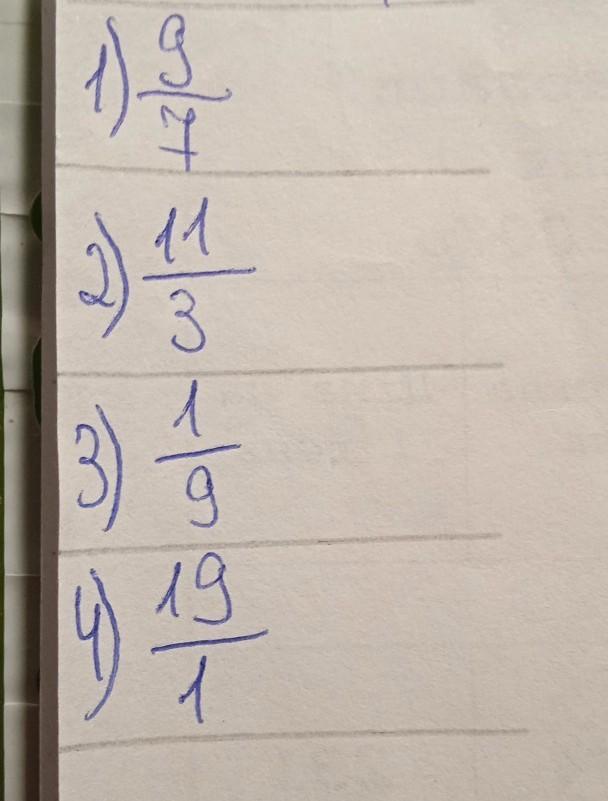 1) 9/7
2) 11/3
3) 1/9
4) 19/1